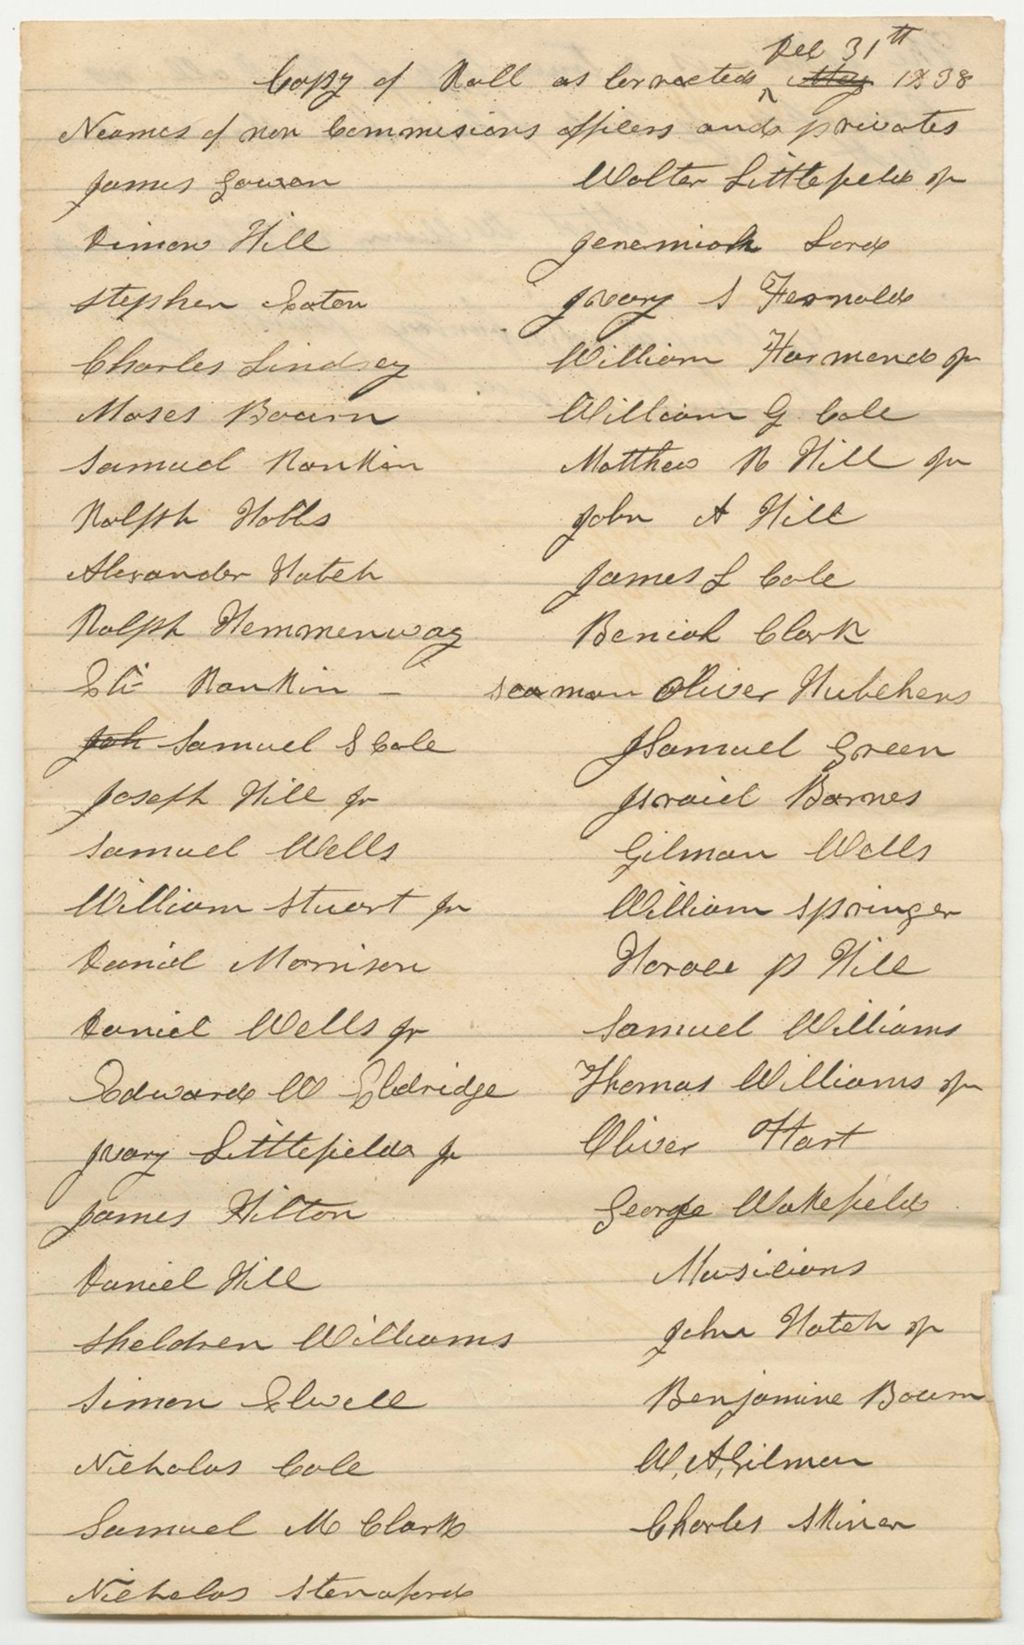 Dec 31th
Copy of Roll as Corrected ^ May 1838
Names of non Commisions officers and privates
James Gowen
Simon Hill
Stephen Eaton
Charles Lindsey
Moses Bourn
Samuel Rankin
Ralph Hobbs
Alexander Hatch
Ralph Hemmenway
Eli Rankin –
Joh Samuel S Cole
Joseph Hill Jr
Samuel Wells
William Stuart Jr
Daniel Morrison
Daniel Wells Jr
Edward W Eldridge
Ivory Littlefield Jr
James Hilton
Daniel Hill
Sheldren Williams
Simon Elwell
Nicholas Cole
Samuel M Clark
Nicholas Stenaford
Walter Littlefield Jr
Jeremiah Lord
Ivory S Fernald
William Harmond Jr
William G Cole
Matthew R Hill Jr
John A Hill
James L Cole
Beniah Clark
seaman Oliver Hutchens
JSamuel Green
Israiel Barnes
Gilman Wells
William Springer
Horace P Hill
Samuel Williams
Thomas Williams Jr
Oliver Hart
George Wakefield
Musicians
John Hatch Jr
Benjamine Bourn
W. A. Gilman
Charles Skiner